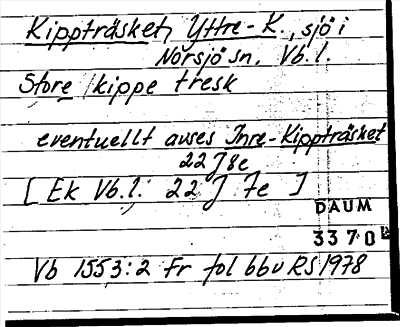 Kippträsket, Yttre-K., sjö i
Norsjö sn, Vb. l.
Store kippe tresk
eventuellt avses Inre-Kippträsket
22 J 8e
[ Ek Vb.l. 22 J 7e ]
DAUM
3370
Vb 1553:2 Fr fol bbv RS 1978